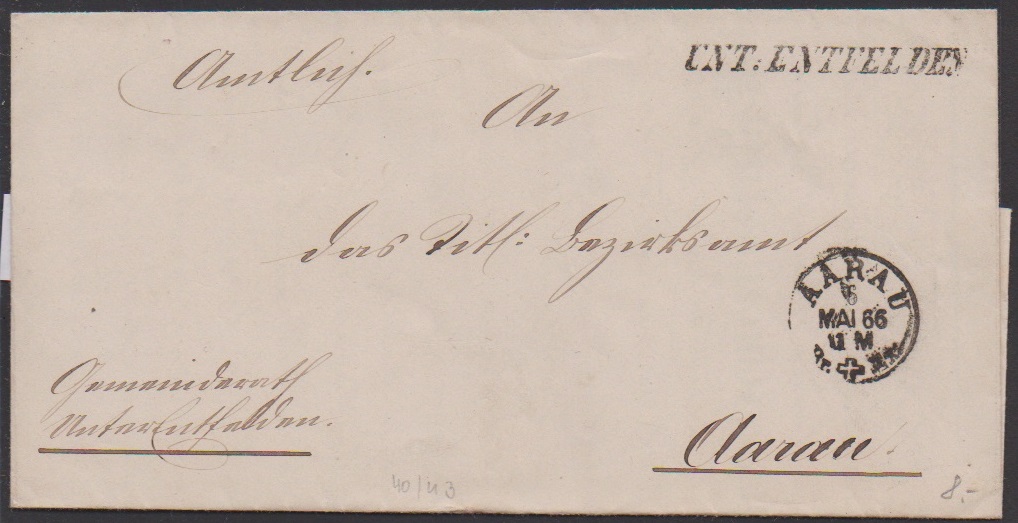 Amtlich.
UNT: ENTFELDEN
An
das Titl: Bezirksamt
AARAU
6
MAI 66
11 M
Gemeinderath
Unterentfelden.
Aarau.
40/43
8.-